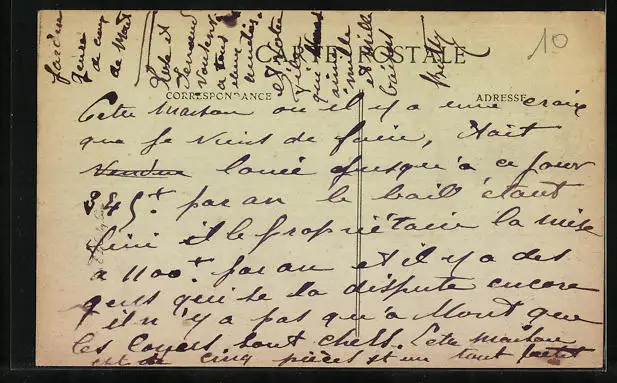 CARTE POSTALE
CORRESPONDANCE
ADRESSE
10
Cette maison ou il y a une croix
que je viens de faire, était
vendue louée jusqu'à ce jour
par an le bail étant
fini il le propriétaire la mise
à 1100 f. par an et il y a des
gens qui se la dispute encore
il n'y a pas qu'à Mont que
les loyers sont chers. Cette maison
est de cinq pièces et un tout petit
jardin
genre a ceux
de Mont
et
a tous
et votre
fille
qui
mille
et mille
baisers